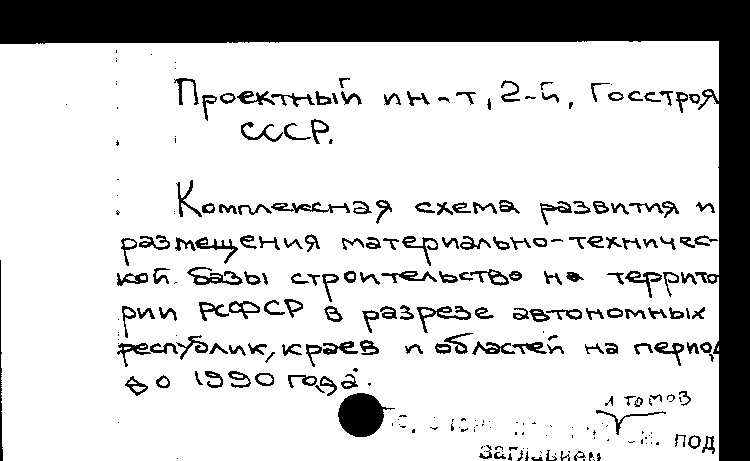 Проектный ин-т, 2-й, Госстроя
СССР.
Комплексная схема развития и
размещения материально-техничес-
кой базы строительство на террито
рии РСФСР в разрезе автономных
республик, краев и областей на период
до 1990 года.
томов
под
заглавием